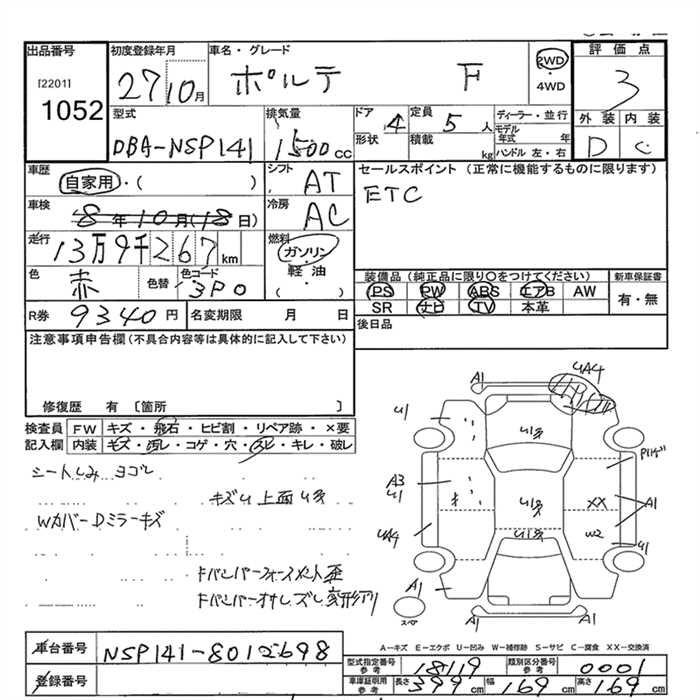 出品番号 初度登録年月 車名・グレード 評価点
[2201] 1052 27 10月 ポルテ F 2WD ・4WD 3
型式 排気量 ドア 定員 ディーラー・並行 外装 内装
DBA-NSP141 1500cc 4 5人 モデル年式 年 D C
形状 積載 kg ハンドル 左・右
車歴 自家用・( ) シフト AT セールスポイント (正常に機能するものに限ります)
車検 8年10月(18日) 冷房 AC ETC
走行 13万9千267km 燃料 ガソリン・軽油・( )
色 赤 色替 色コード 3P0
装備品 (純正品に限り○をつけてください) 新車保証書
PS PW ABS エアB AW 有・無
SR ナビ TV 本革
R券 9340円 名変期限 月 日 後日品
注意事項申告欄(不具合内容等は具体的に記入して下さい)
修復歴 有 〔箇所 〕
検査員記入欄 FW キズ・飛石・ヒビ割・リペア跡・×要
内装 キズ・汚レ・コゲ・穴・スレ・キレ・破レ
シートしみ ヨゴレ
キズU 上面U多
WカバーDミラーキズ
A1
UA4
U1
U1多
P1ハゲ
A3
U1
U1多
XX
A1
UA4
U1多
W2
U1
A1
スペア
A1
A-キズ E-エクボ U-凹み W-補修跡 S-サビ C-腐食 XX-交換済
車台番号 NSP141-8012698
登録番号
型式指定番号参考 18119 類別区分番号参考 0001
車庫証明用参考 長さ 399cm 幅 169cm 高さ 169cm